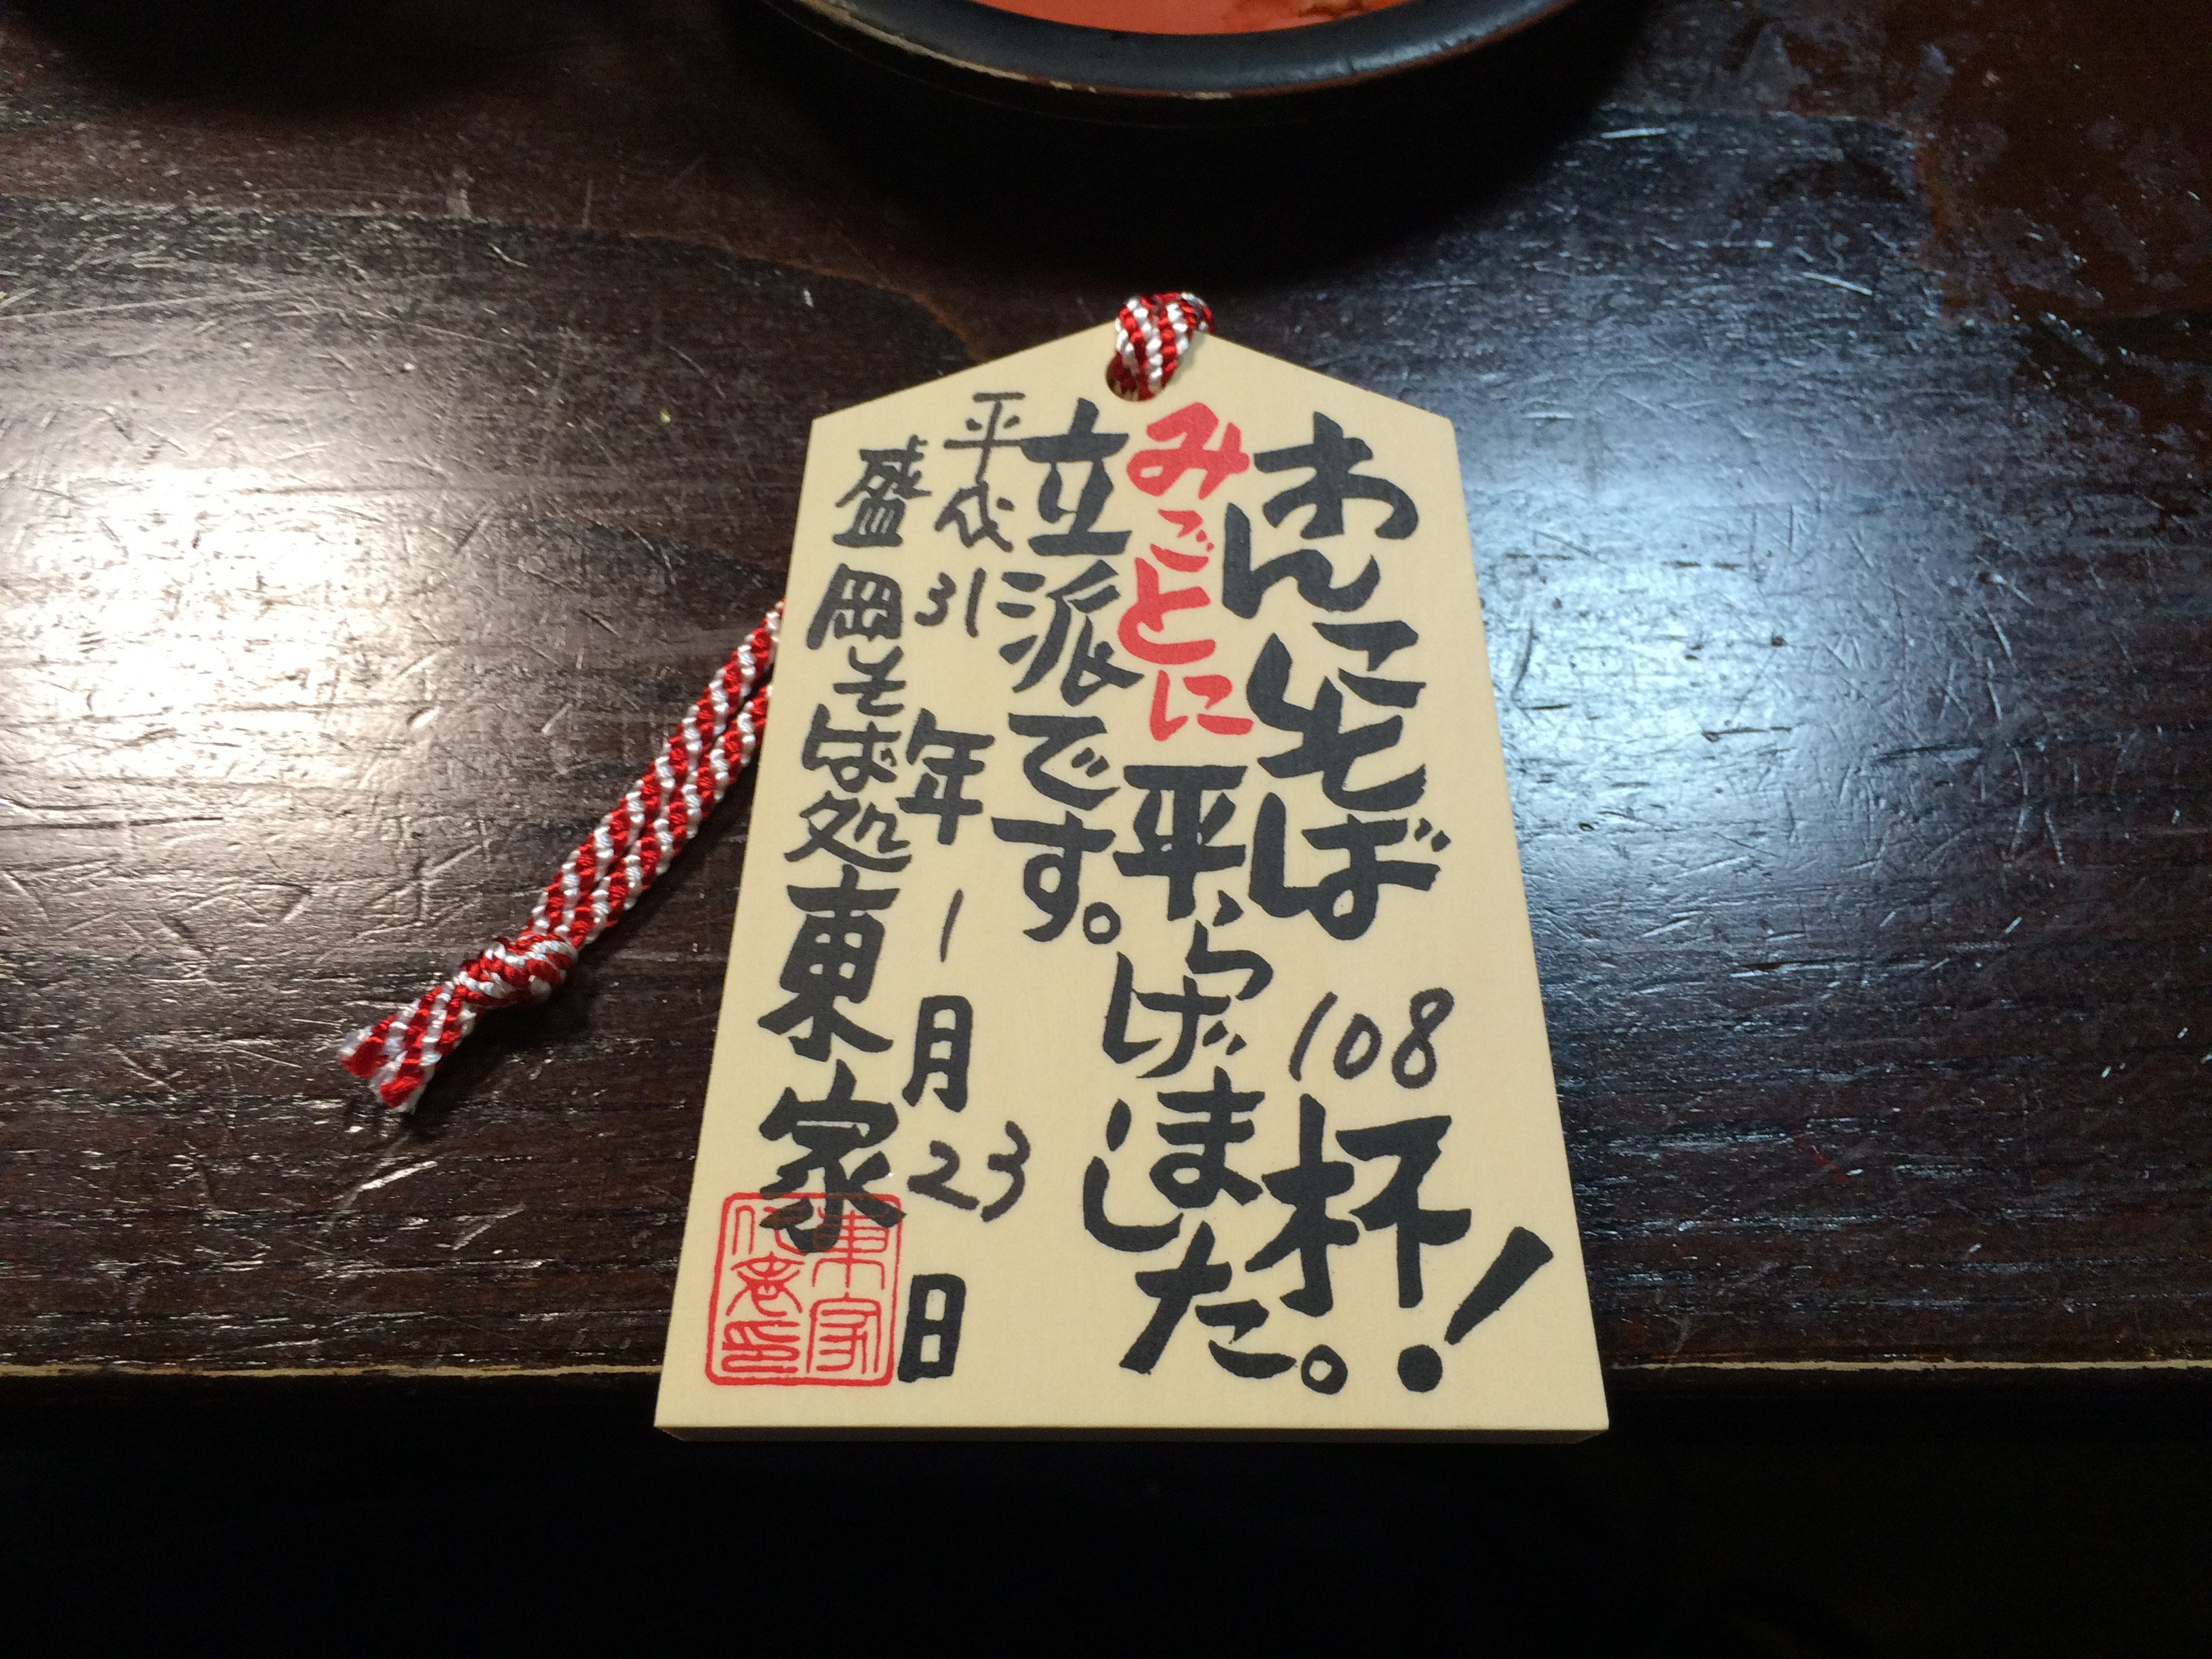 わんこそば 108 杯!
みごとに平らげました。
立派です。
平成 31 年 1 月 23 日
盛岡そば処 東家
東家
代表印